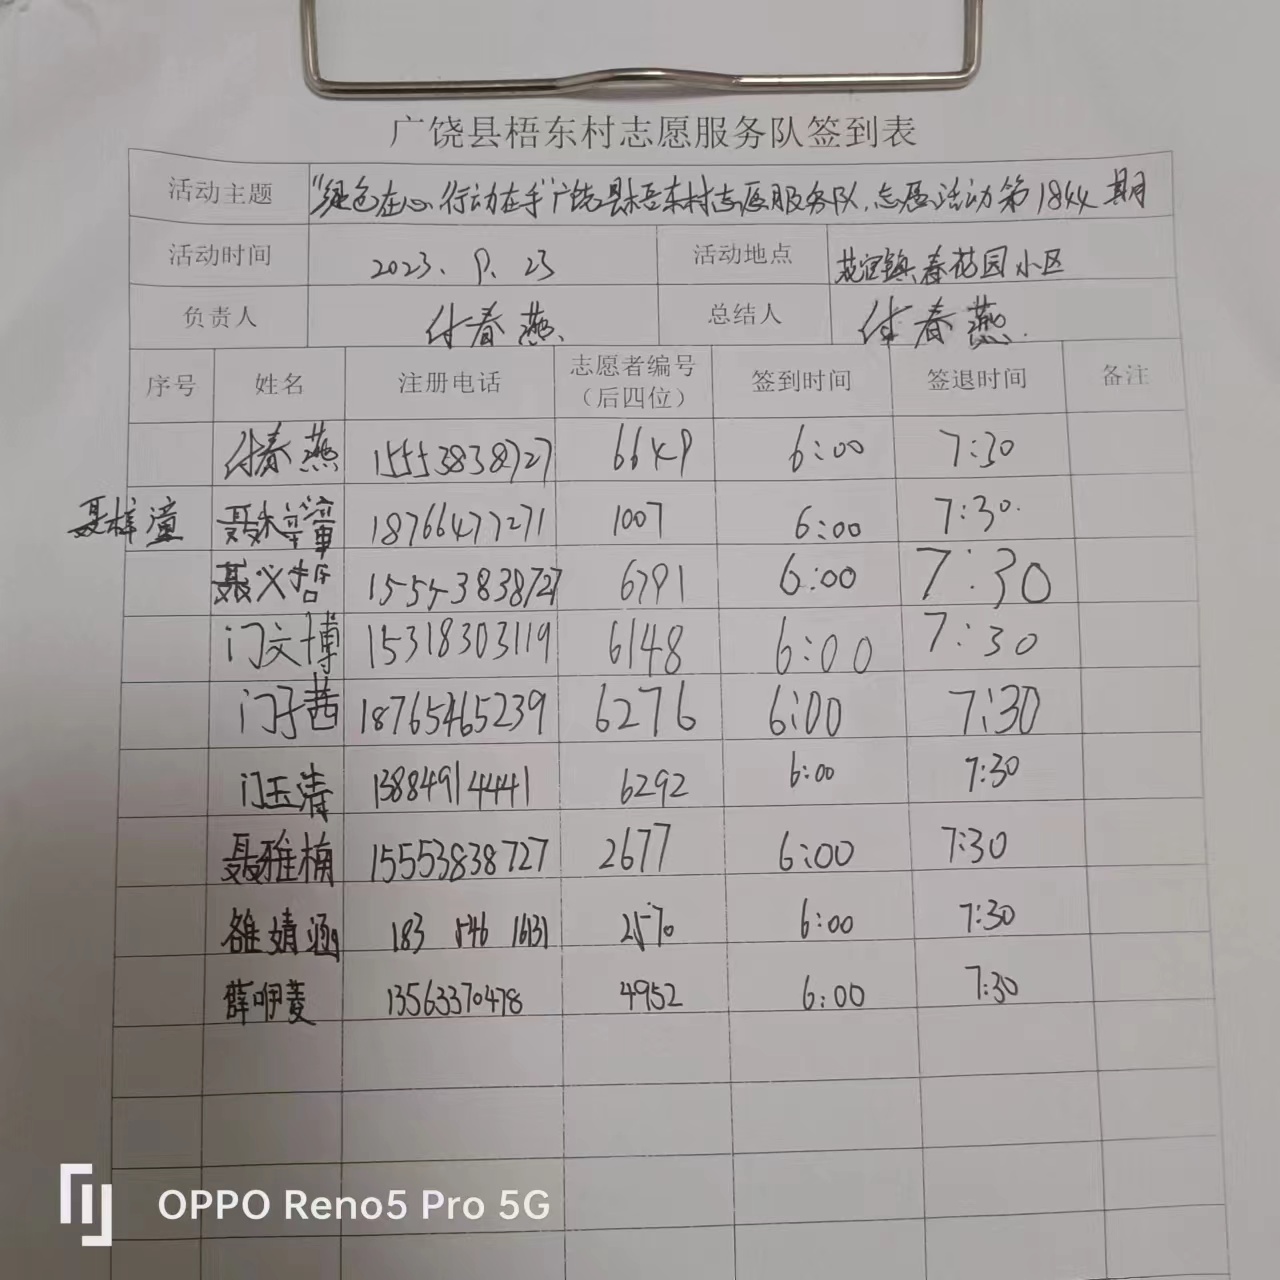 广饶县梧东村志愿服务队签到表
活动主题 "绿色在心 行动在手"广饶县梧东村志愿服务队,志愿活动第1844期
活动时间 2023.9.23 活动地点 花官镇春花园小区
负责人 付春燕 总结人 付春燕
序号 姓名 注册电话 志愿者编号（后四位） 签到时间 签退时间 备注
付春燕 15553838727 6649 6:00 7:30
聂梓潼 聂梓潼 18766477271 1007 6:00 7:30
聂义哲 15553838727 6791 6:00 7:30
门文博 15318303119 6148 6:00 7:30
门子茜 18765465239 6276 6:00 7:30
门玉清 13884914441 6292 6:00 7:30
聂雅楠 15553838727 2677 6:00 7:30
雒婧涵 183 546 16131 2570 6:00 7:30
薛咿菱 13563370478 4952 6:00 7:30
OPPO Reno5 Pro 5G